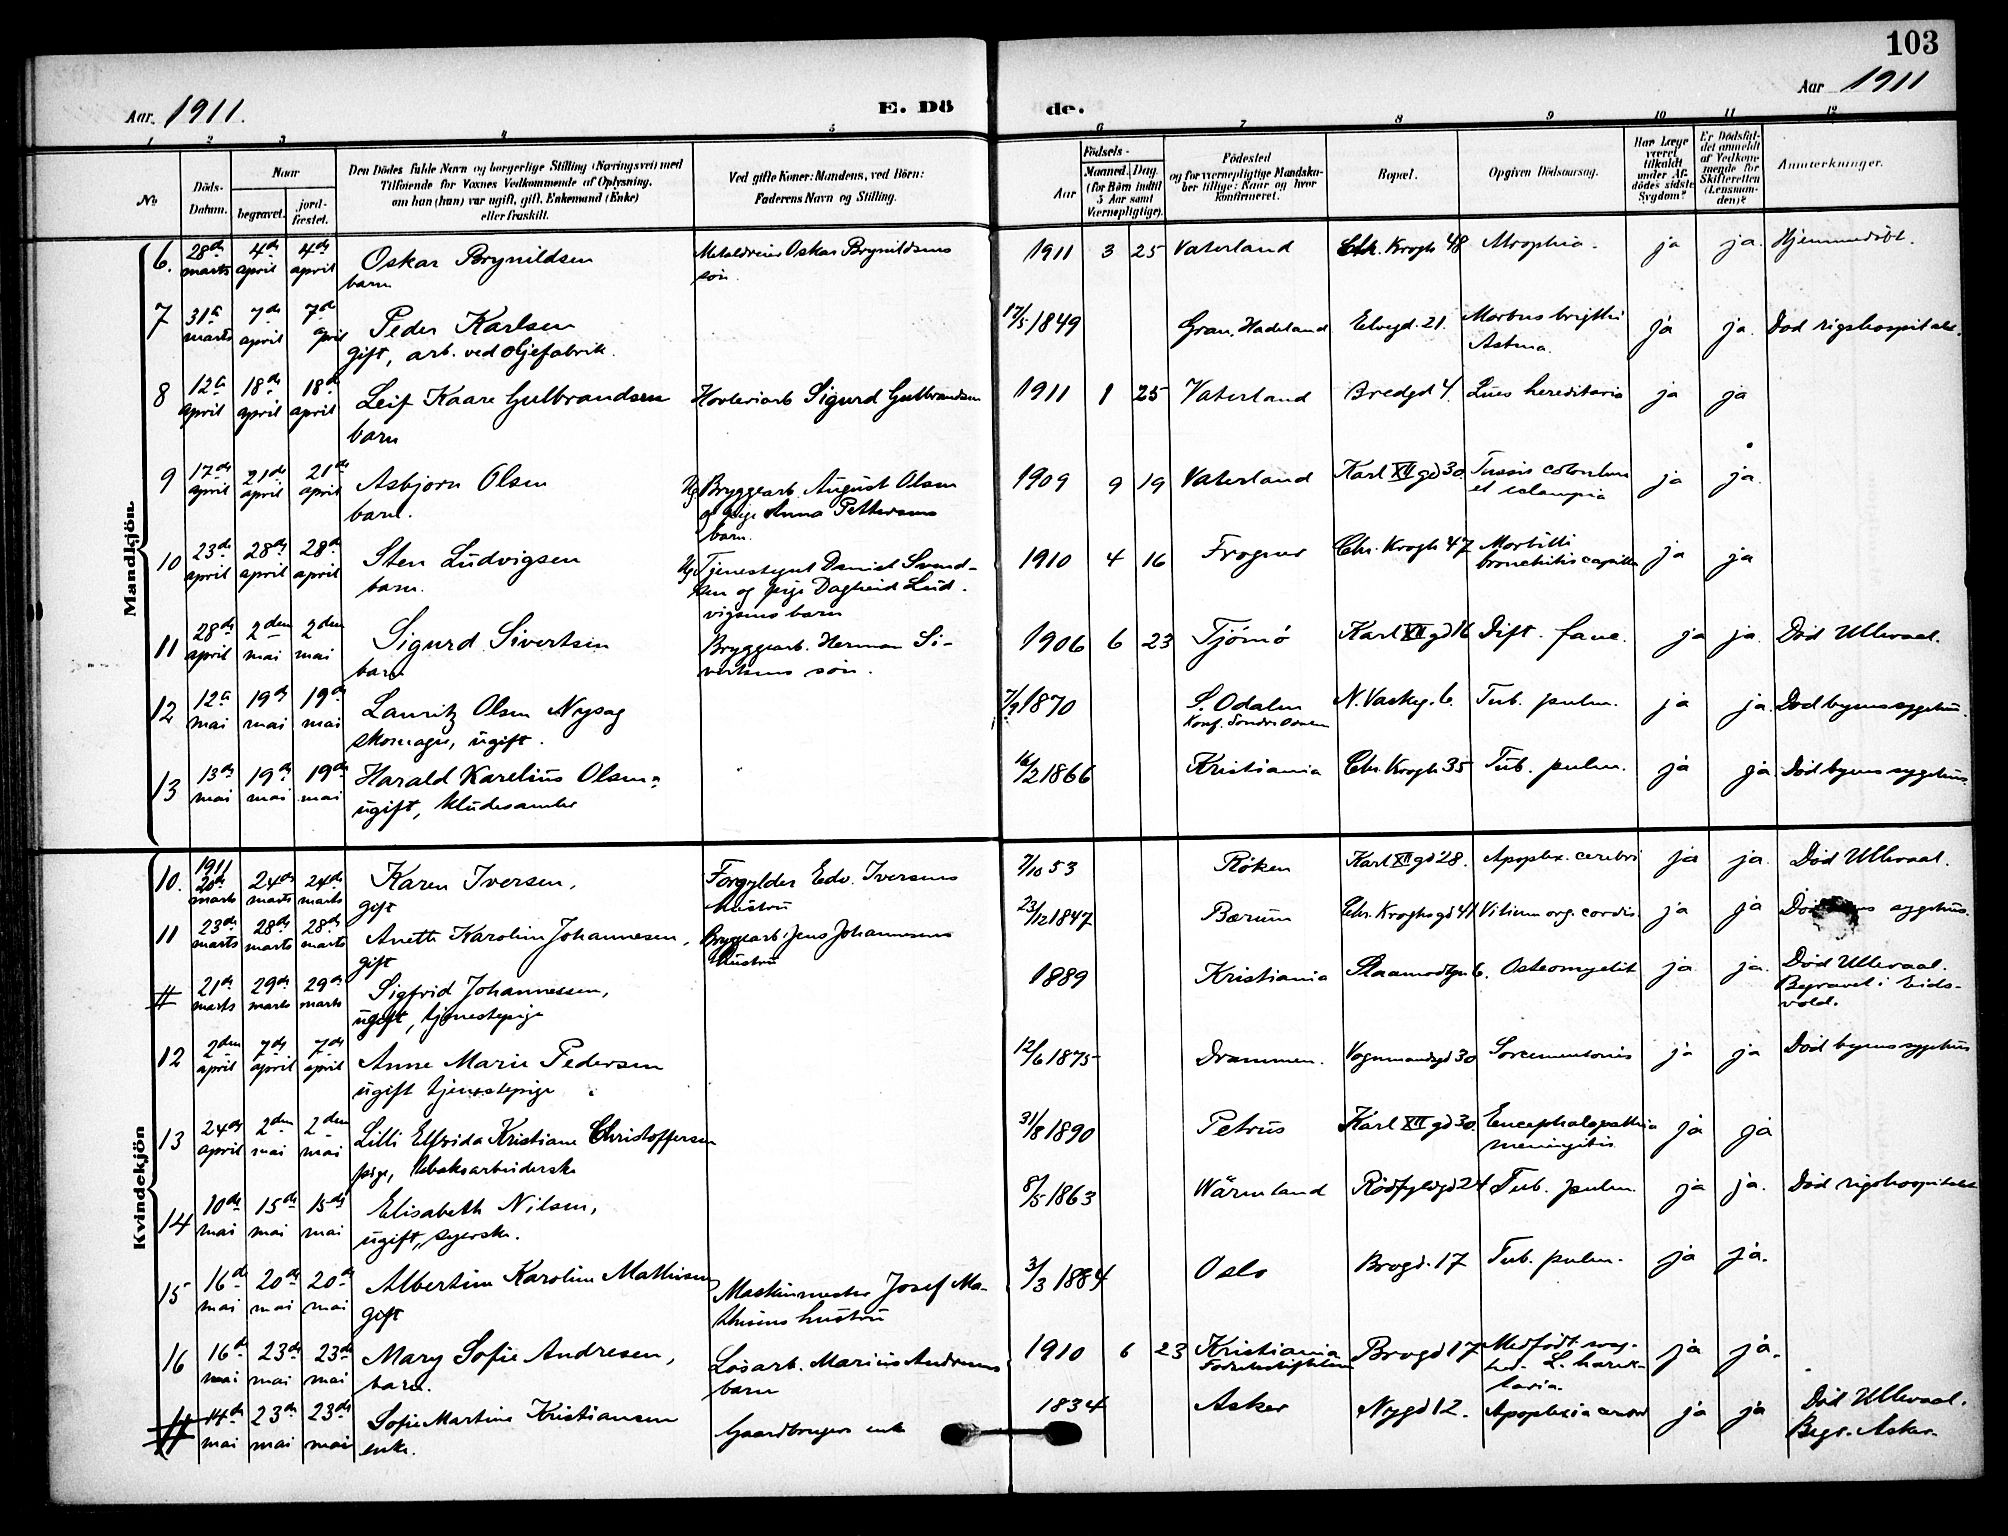 103
Aar. 1911.
E. Döde.
Aar 1911
1 2 3 4 5 6 7 8 9 10 11 12
No
Döds-Datum.
Naar
begravet.
jord-fæstet.
Den Dödes fulde Navn og borgerlige Stilling (Næringsvei) med
Tilföiende for Voxnes Vedkommende af Oplysning,
om han (hun) var ugift, gift, Enkemand (Enke)
eller fraskilt.
Ved gifte Koner: Mandens, ved Börn:
Faderens Navn og Stilling.
Födsels-
Aar
Maaned. Dag.
(for Börn indtil
5 Aar samt
Værnepligtige).
Födested
og for værnepligtige Mandska-
ber tillige: Naar og hvor
konfirmeret.
Bopæl.
Opgiven Dödsaarsag.
Har Læge
været
tilkaldt
under Af-
dödes sidste
Sygdom?
Er Dödsfal-
det anmeldt
af Vedkom-
mende for
Skifteretten
(Lensman-
den)?
Anmærkninger.
Mandkjön.
6. 28de marts 4de april 4de april Oskar Brynildsen Metaldreier Oskar Brynildsens 1911 3 25 Vaterland Chr. Krogh 48 Atrophia. ja ja. Hjemmedöbt.
barn søn.
7 31te marts 7de april 7de april Peder Karlsen 17/5 1849 Gran, Hadeland Elvegd. 21. Morbus brigthii ja ja. Död rigshospitalet.
gift, arb. ved oljefabrik. Astma.
8 12te april 18de april 18de april Leif Kaare Gulbrandsen Høvleriarb Sigurd Gulbrandsen 1911 1 25 Vaterland Bredgd 4. Lues hereditaria ja ja
barn
9 17de april 21de april 21de april Asbjørn Olsen Ug Bryggearb. August Olsen 1909 9 19 Vaterland Karl XII gd 30. Tussis ja ja.
barn. og pige Anna Pettersens et eclampia
barn.
10 23de april 28de april 28de april Sten Ludvigsen Ug Tjenestegut Daniel Svend- 1910 4 16 Frogner Chr. Krogh 47 Morbilli ja ja
barn. sen og pige Dagheid Lud- bronchitis capill
vigsens barn
11 28de april 2den mai 2den mai Sigurd Sivertsen Bryggearb. Herman Si- 1906 6 23 Tjömö Karl XII gd 16 Dift. fauc. ja ja. Död Ullevaal.
barn vertsens søn.
12 12te mai 19de mai 19de mai Lauritz Olsen Nysag 7/9 1870 S. Odalen N. Vaskeg. 6. Tub. pulm. ja ja. Död byens sygehus.
skomager, ugift. Konf. Søndre Odalen
13 13de mai 19de mai 19de mai Harald Karelius Olsen 16/2 1866 Kristiania Chr. Krogh 35 Tub. pulm. ja ja. Död byens sygehus.
ugift, kludesamler
Kvindekjön
10. 1911 20de marts 24de marts 24de marts Karen Iversen, Forgylder Edv. Iversens 7/10 53 Røken Karl XII gd 28. Apoplex. cerebri ja ja. Död Ullevaal.
gift hustru
11 23de marts 28de marts 28de marts Anette Karoline Johannesen, Bryggearb. Jens Johannesens 23/12 1847 Bærum Chr. Kroghs gd 41 Vitium org. cordis. ja ja Död sygehus.
gift hustru
# 21de marts 29de marts 29de marts Sigfrid Johannessen, 1889 Kristiania 6. Osteomyelit ja ja. Död Ullevaal.
ugift, tjenestepige Begravet i Eids-
vold.
12 2den april 7de april 7de april Anne Marie Pedersen 12/6 1875 Drammen. Vognmandsgd 30 ja ja Död byens sygehus
ugift tjenestepige
13 24de april 2den mai 2den mai Lilli Elfrida Kristiane Christoffersen 31/8 1890 Petrus Karl XII gd 30. Encephalopathia ja ja
pige, tobaksarbeiderske meningitis
14 10de mai 15de mai 15de mai Elisabeth Nilsen, 8/5 1863 Wärmland Rödfyldgd 24 Tub. pulm. ja ja. Död rigshospitalet
ugift, syerske.
15 16de mai 20de mai 20de mai Albertine Karoline Mathisen Maskinmester Josef Ma- 3/3 1884 Oslo Brogd. 17 Tub. pulm. ja ja.
gift thisens hustru
16 16de mai 23de mai 23de mai Mary Sofie Andresen, Løsarb. Marius Andresens 1910 6 23 Kristiania Brogd 17 Medfödt svag- ja ja.
barn. barn Fødselsstiftelsen hed. L.
# 14de mai 23de mai 23de mai Sofie Martine Kristiansen Gaardbruger enke 1834 Asker Nygd 12. Apoplexia cerebri ja ja Död Ullevaal.
enke. Begr. Asker.